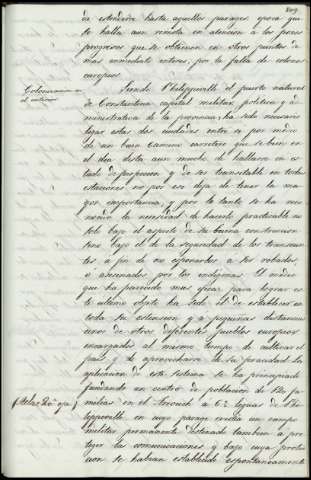 209
de estenderla hasta aquellos parages epoca que
se halla aun remota en atencion à los pocos
progresos que se obtienen en otros puntos de
mas inmediato interes, por la falta de colonos
europeos.
Siendo Philippeville el puerto natural
de Constantina capital militar, politica y ad
ministrativa de la provincia, ha sido necesario
ligar estas dos ciudades entre si por medio
de un buen camino carretero que si bien en
el dia dista aun mucho de hallarse en es
tado de perfeccion y de ser transitable en todas
estaciones no por eso deja de tener la ma
yor importancia, y por lo tanto se ha reco
nocido la necesidad de hacerlo practicable no
solo bajo el aspecto de su buena construccion
sino bajo el de la seguridad de los transeun
tes à fin de no esponerlos à ser robados,
ó asesinados por los indigenas. El medio
que ha parecido mas eficaz para lograr es
te ultimo objeto ha sido el de establecer en
toda su estension y a pequeñas distancias
unos de otros diferentes pueblos europeos
encargados al mismo tiempo de cultivar el
pais y de aprovecharse de su feracidad. La
aplicacion de este sistema se ha principiado
fundando un centro de poblacion de 120 fa
milias en el Arrouch à 6½ leguas de Phi
lippeville en cuyo parage existia un campo
militar permanente destinado tambien à pro
teger las comunicaciones y bajo cuya protec
cion se habian establecido espontaneamente
Colonizacion
el interior